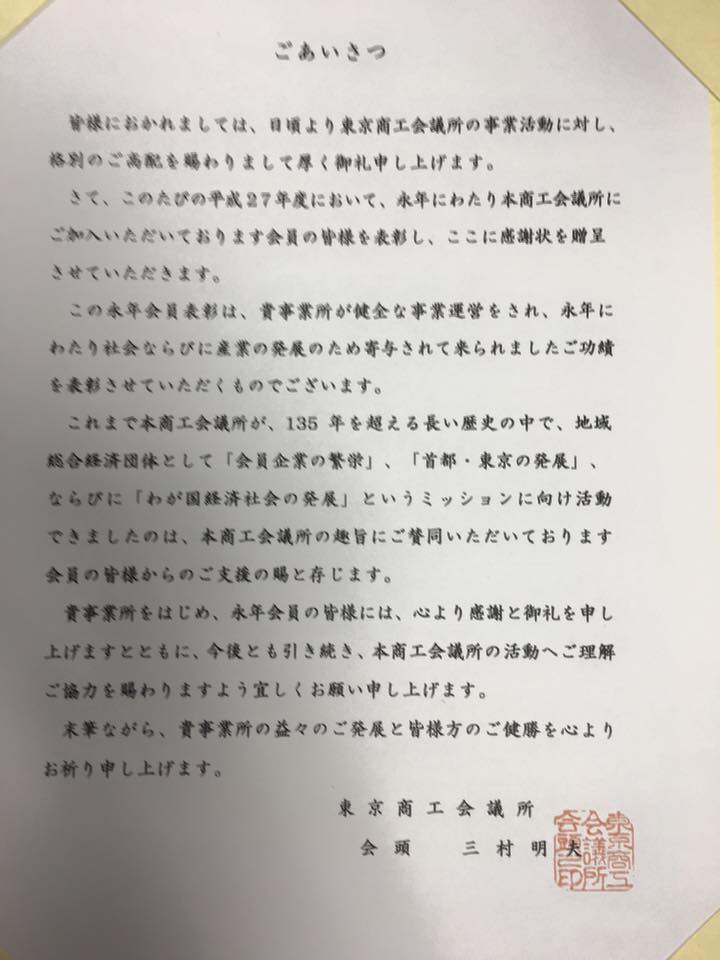 ごあいさつ
皆様におかれましては、日頃より東京商工会議所の事業活動に対し、
格別のご高配を賜わりまして厚く御礼申し上げます。
さて、このたびの平成27年度において、永年にわたり本商工会議所に
ご加入いただいております会員の皆様を表彰し、ここに感謝状を贈呈
させていただきます。
この永年会員表彰は、貴事業所が健全な事業運営をされ、永年に
わたり社会ならびに産業の発展のため寄与されて来られましたご功績
を表彰させていただくものでございます。
これまで本商工会議所が、135年を超える長い歴史の中で、地域
総合経済団体として「会員企業の繁栄」、「首都・東京の発展」、
ならびに「わが国経済社会の発展」というミッションに向け活動
できましたのは、本商工会議所の趣旨にご賛同いただいております
会員の皆様からのご支援の賜と存じます。
貴事業所をはじめ、永年会員の皆様には、心より感謝と御礼を申し
上げますとともに、今後とも引き続き、本商工会議所の活動へご理解
ご協力を賜わりますよう宜しくお願い申し上げます。
末筆ながら、貴事業所の益々のご発展と皆様方のご健勝を心より
お祈り申し上げます。
東京商工会議所
会頭 三村明夫
東京商工
会議所
会頭之印